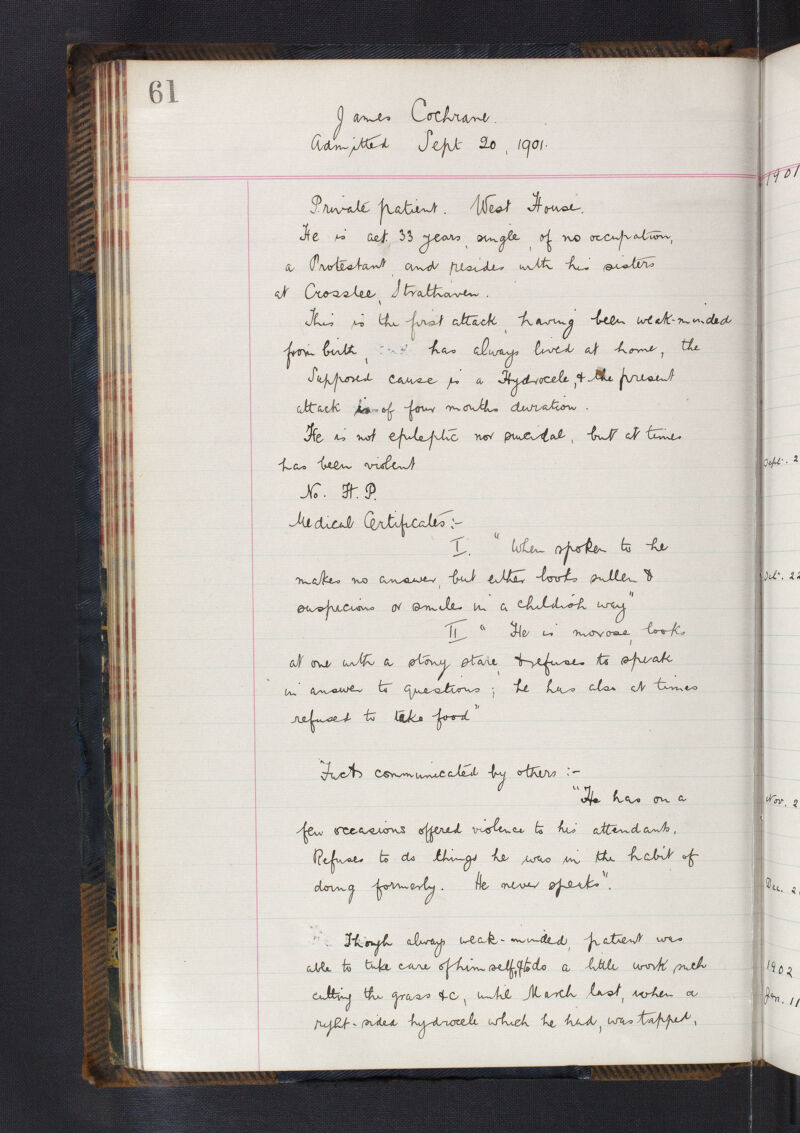 61
James Cochrane.
Admitted Sept 20, 1901.
Private patient. West House.
He is aet. 33 years, single, of no occupation,
a Protestant, and resides with his sisters
at Crosslee, Strathaven.
This is the first attack, having been weak-minded
from birth, has always lived at home, the
Supposed cause is a Hydrocele, & the present
attack is of four months duration.
He is not epileptic nor suicidal, but at times
has been violent
No. H.P.
Medical Certificates:-
I. "When spoken to he
makes no answer, but either looks sullen &
suspicious or smiles in a childish way"
II "He is morose, looks
at one with a stony stare, & refuses to speak
in answer to questions; he has also at times
refused to take food"
Facts communicated by others:-
"He has on a
few occasions offered violence to his attendants.
Refuses to do things he was in the habit of
doing formerly. He never speaks".
Though always weak-minded, patient was
able to take care of himself, & to do a little work such
cutting the grass &c, until March last, when a
right-sided hydrocele which he had, was tapped,
1901
Sept. 2
Oct. 22
Nov. 2
Dec. 2
1902
Jan. 11